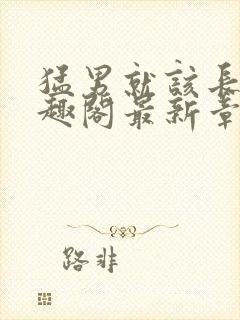 猛男就該長
趣閣最新章
路非